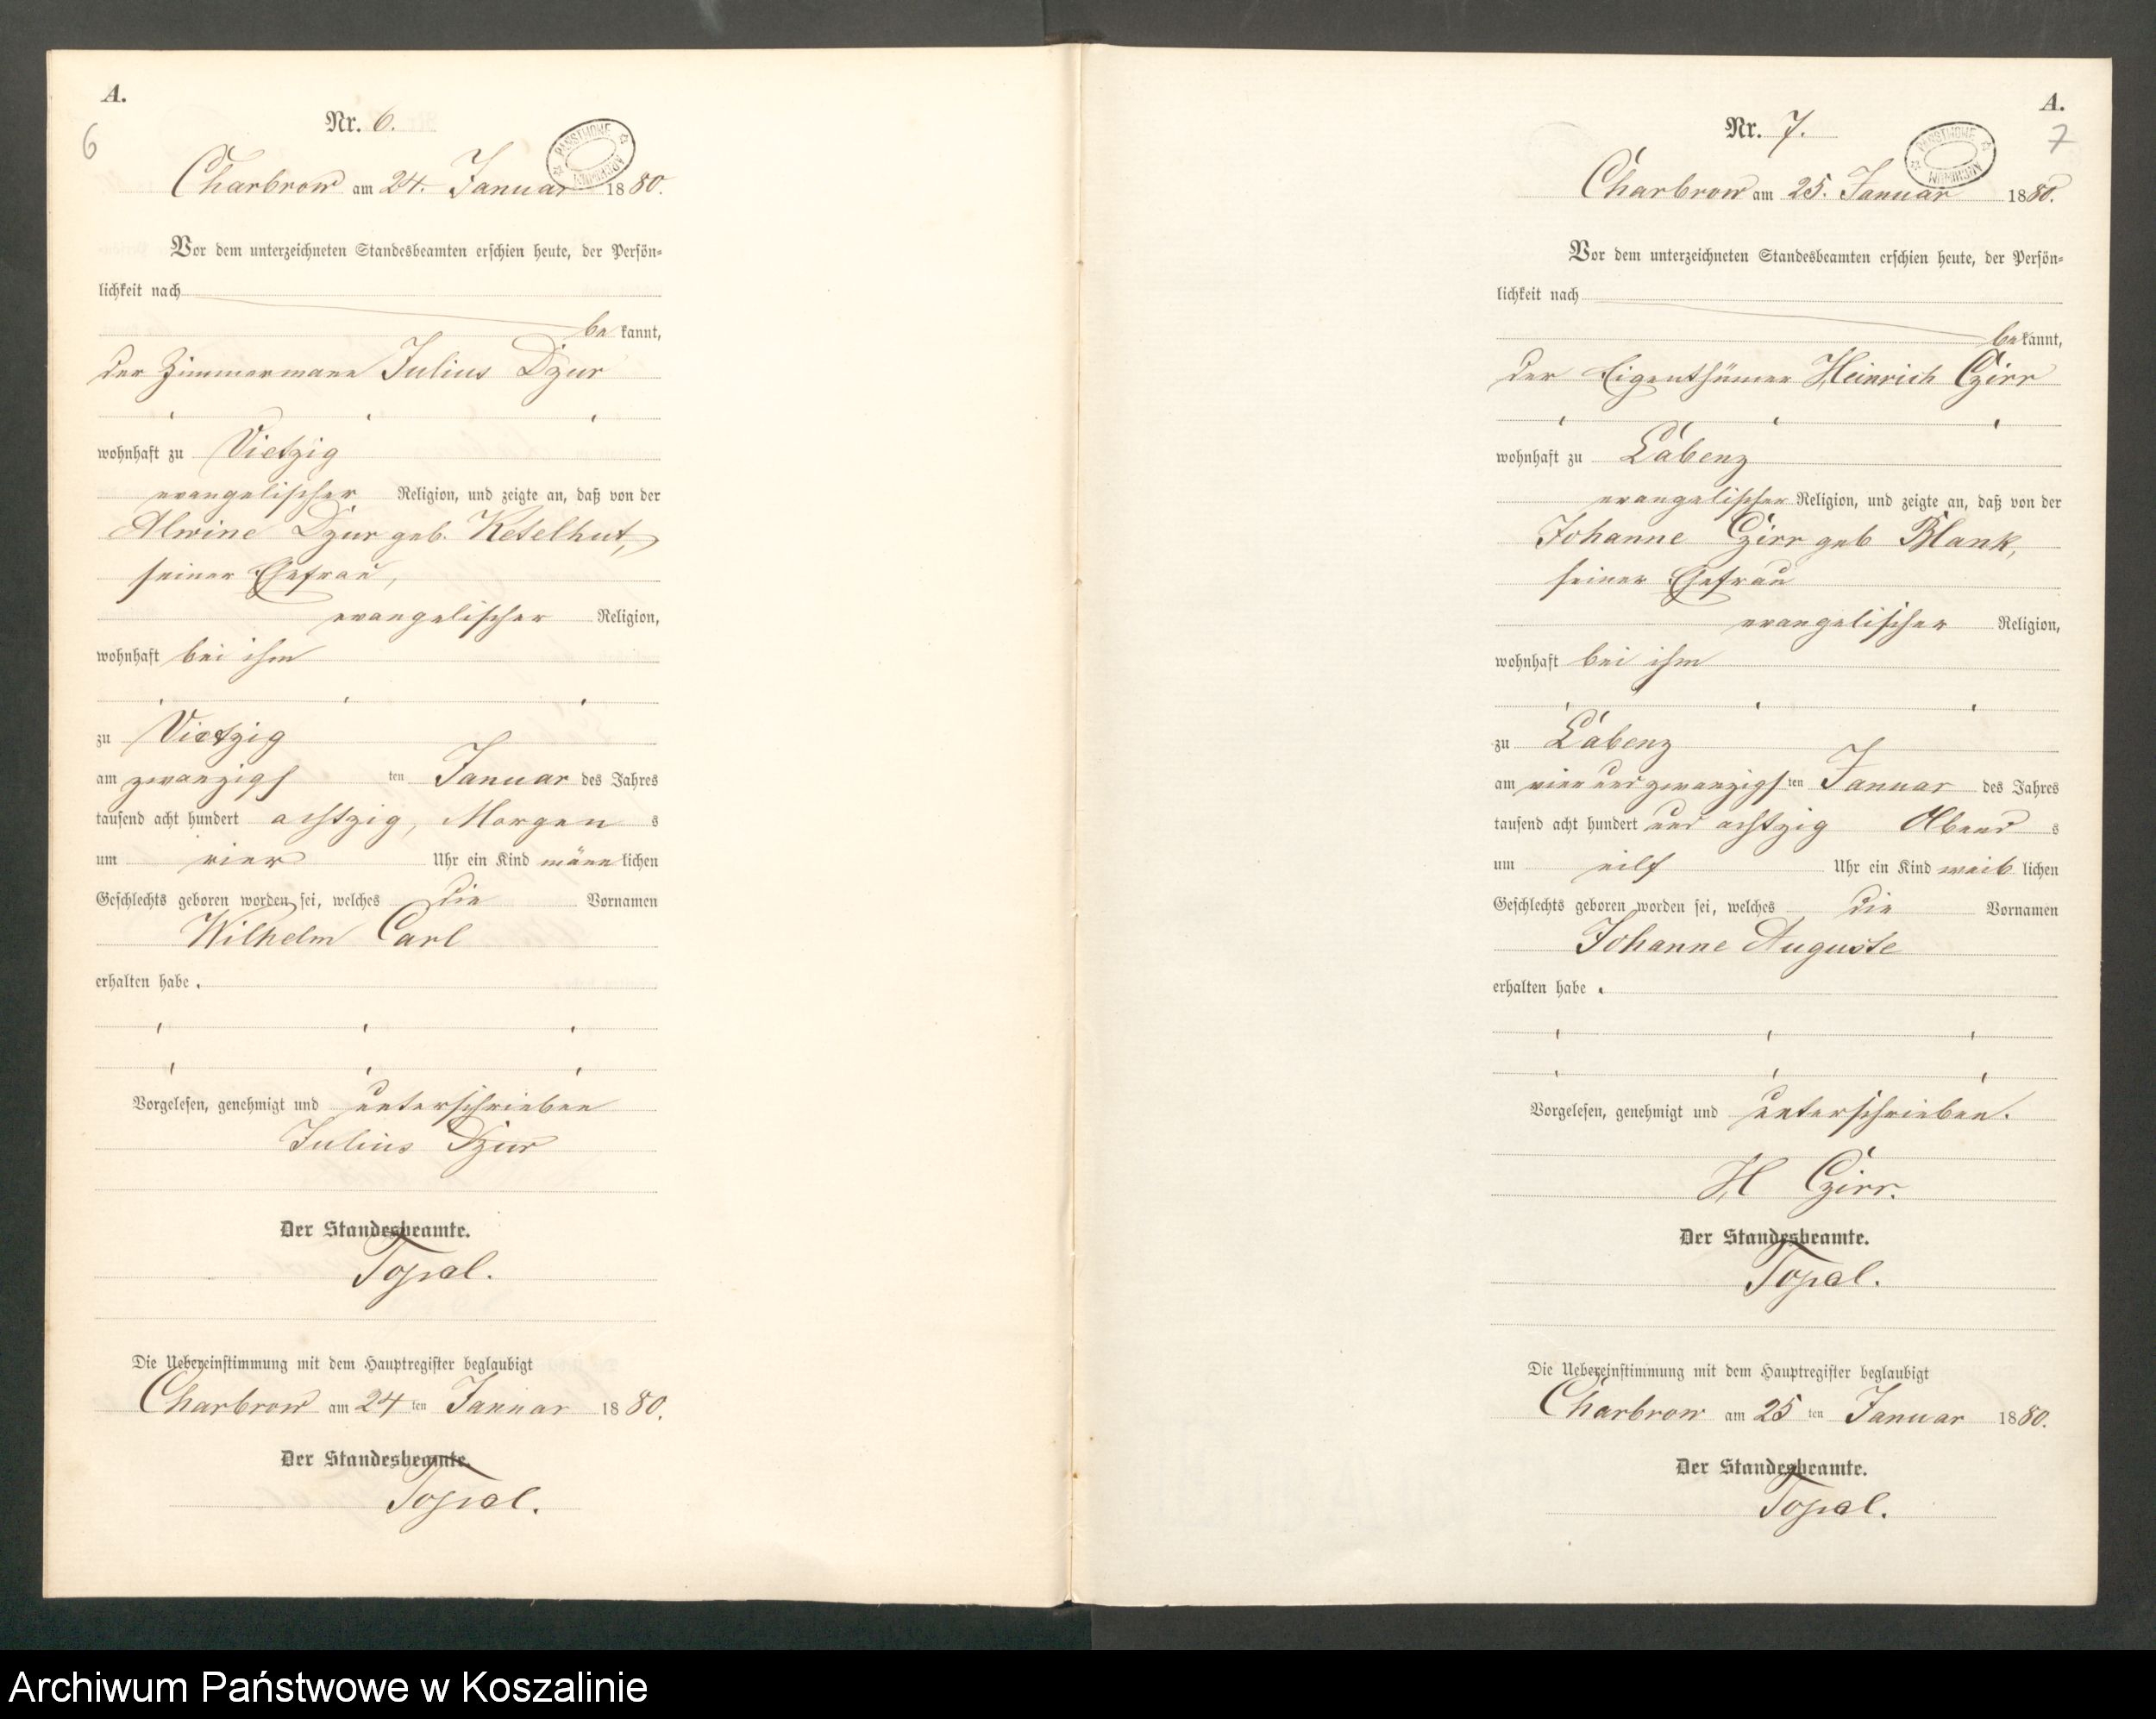 A.
6
Nr. 6.
PAŃSTWOWE ARCHIWUM
Charbrow am 24. Januar 1880.
Vor dem unterzeichneten Standesbeamten erschien heute, der Persön-
lichkeit nach
bekannt,
der Zimmermann Julius Dzur
wohnhaft zu Vietzig
evangelischer Religion, und zeigte an, daß von der
Alwine Dzur geb. Ketelhut,
seiner Ehefrau,
evangelischer Religion,
wohnhaft bei ihm
zu Vietzig
am zwanzigsten Januar des Jahres
tausend acht hundert achtzig, Morgens
um vier Uhr ein Kind männlichen
Geschlechts geboren worden sei, welches die Vornamen
Wilhelm Carl
erhalten habe.
Vorgelesen, genehmigt und unterschrieben
Julius Dzur
Der Standesbeamte.
Topel.
Die Uebereinstimmung mit dem Hauptregister beglaubigt
Charbrow am 24ten Januar 1880.
Der Standesbeamte.
Topel.
A.
7
Nr. 7.
PAŃSTWOWE ARCHIWUM
Charbrow am 25. Januar 1880.
Vor dem unterzeichneten Standesbeamten erschien heute, der Persön-
lichkeit nach
bekannt,
der Eigenthümer Heinrich Czirr
wohnhaft zu Labenz
evangelischer Religion, und zeigte an, daß von der
Johanne Czirr geb Blank,
seiner Ehefrau
evangelischer Religion,
wohnhaft bei ihm
zu Labenz
am vier und zwanzigsten Januar des Jahres
tausend acht hundert und achtzig Abends
um eilf Uhr ein Kind weiblichen
Geschlechts geboren worden sei, welches die Vornamen
Johanne Auguste
erhalten habe.
Vorgelesen, genehmigt und unterschrieben.
H Czirr.
Der Standesbeamte.
Topel.
Die Uebereinstimmung mit dem Hauptregister beglaubigt
Charbrow am 25ten Januar 1880.
Der Standesbeamte.
Topel.
Archiwum Państwowe w Koszalinie